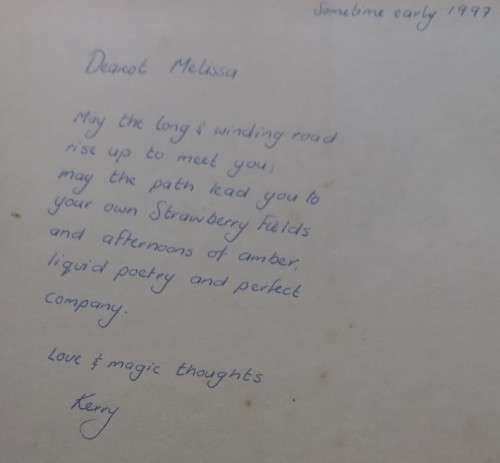 Sometime early 1997
Dearest Melissa
May the long & winding road
rise up to meet you,
may the path lead you to
your own Strawberry Fields
and afternoons of amber,
liquid poetry and perfect
company.
Love & magic thoughts
Kerry